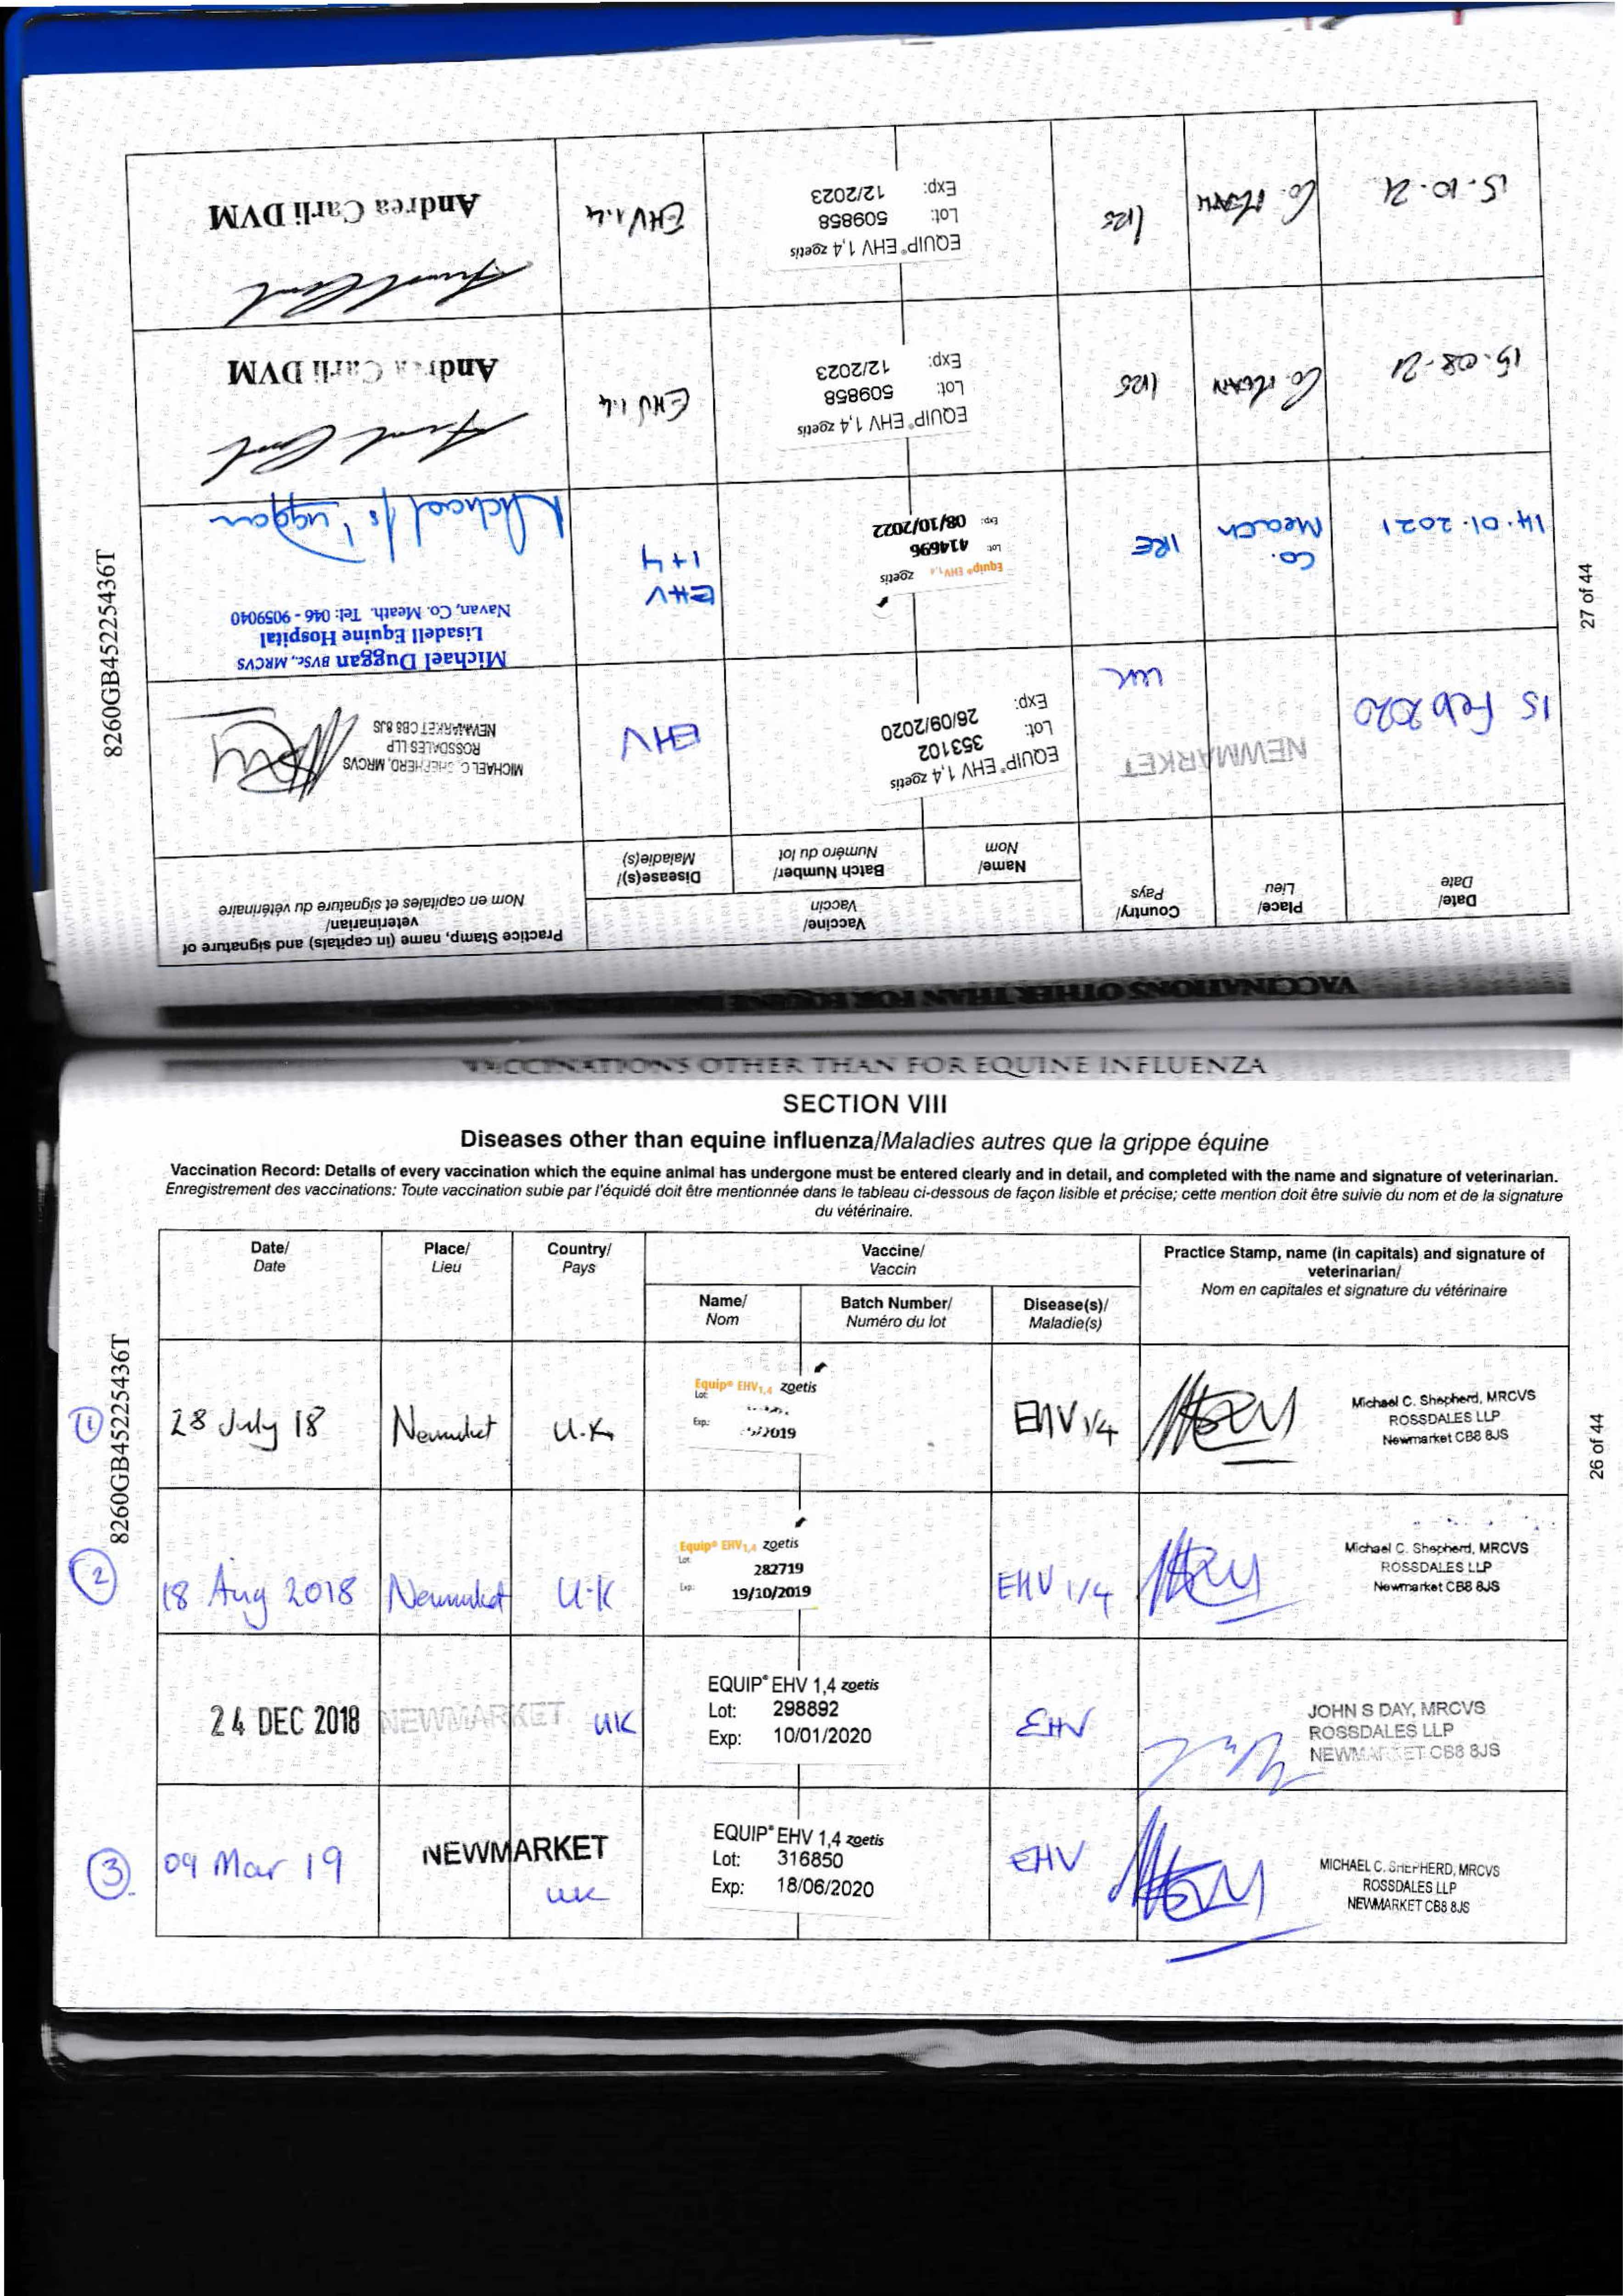 VACCINATIONS OTHER THAN FOR EQUINE INFLUENZA
SECTION VIII
Diseases other than equine influenza/Maladies autres que la grippe équine
Vaccination Record: Details of every vaccination which the equine animal has undergone must be entered clearly and in detail, and completed with the name and signature of veterinarian.
Enregistrement des vaccinations: Toute vaccination subie par l'équidé doit être mentionnée dans le tableau ci-dessous de façon lisible et précise; cette mention doit être suivie du nom et de la signature
du vétérinaire.
Date/
Date
Place/
Lieu
Country/
Pays
Vaccine/
Vaccin
Name/
Nom
Batch Number/
Numéro du lot
Disease(s)/
Maladie(s)
Practice Stamp, name (in capitals) and signature of
veterinarian/
Nom en capitales et signature du vétérinaire
8260GB45225436T
26 of 44
1
28 July 18
Newmarket
U.K
Equip® EHV1,4 zoetis
Lot:
Exp: 2019
EHV 1/4
Michael C. Shepherd, MRCVS
ROSSDALES LLP
Newmarket CB8 8JS
2
18 Aug 2018
Newmarket
U.K
Equip® EHV1,4 zoetis
Lot: 282719
Exp: 19/10/2019
EHV 1/4
Michael C. Shepherd, MRCVS
ROSSDALES LLP
Newmarket CB8 8JS
24 DEC 2018
NEWMARKET
UK
EQUIP® EHV 1,4 zoetis
Lot: 298892
Exp: 10/01/2020
EHV
JOHN S DAY, MRCVS
ROSSDALES LLP
NEWMARKET CB8 8JS
3
09 Mar 19
NEWMARKET
UK
EQUIP® EHV 1,4 zoetis
Lot: 316850
Exp: 18/06/2020
EHV
MICHAEL C. SHEPHERD, MRCVS
ROSSDALES LLP
NEWMARKET CB8 8JS
VACCINATIONS OTHER THAN FOR EQUINE
Date/
Date
Place/
Lieu
Country/
Pays
Vaccine/
Vaccin
Name/
Nom
Batch Number/
Numéro du lot
Disease(s)/
Maladie(s)
Practice Stamp, name (in capitals) and signature of
veterinarian/
Nom en capitales et signature du vétérinaire
8260GB45225436T
27 of 44
15 Feb 2020
NEWMARKET
UK
EQUIP® EHV 1,4 zoetis
Lot: 353102
Exp: 26/09/2020
EHV
MICHAEL C. SHEPHERD, MRCVS
ROSSDALES LLP
NEWMARKET CB8 8JS
14.01.2021
Co.
Meath
IRE
Equip® EHV1,4 zoetis
Lot: 414696
Exp: 08/10/2022
EHV
1+4
Michael Duggan BVSc, MRCVS
Lisadell Equine Hospital
Navan, Co. Meath. Tel: 046 - 9059040
15.08.21
Co. Meath
EQUIP® EHV 1,4 zoetis
Lot: 509858
Exp: 12/2023
EHV 1.4
Andrea Carli DVM
15.10.21
Co. Meath
EQUIP® EHV 1,4 zoetis
Lot: 509858
Exp: 12/2023
EHV 1.4
Andrea Carli DVM